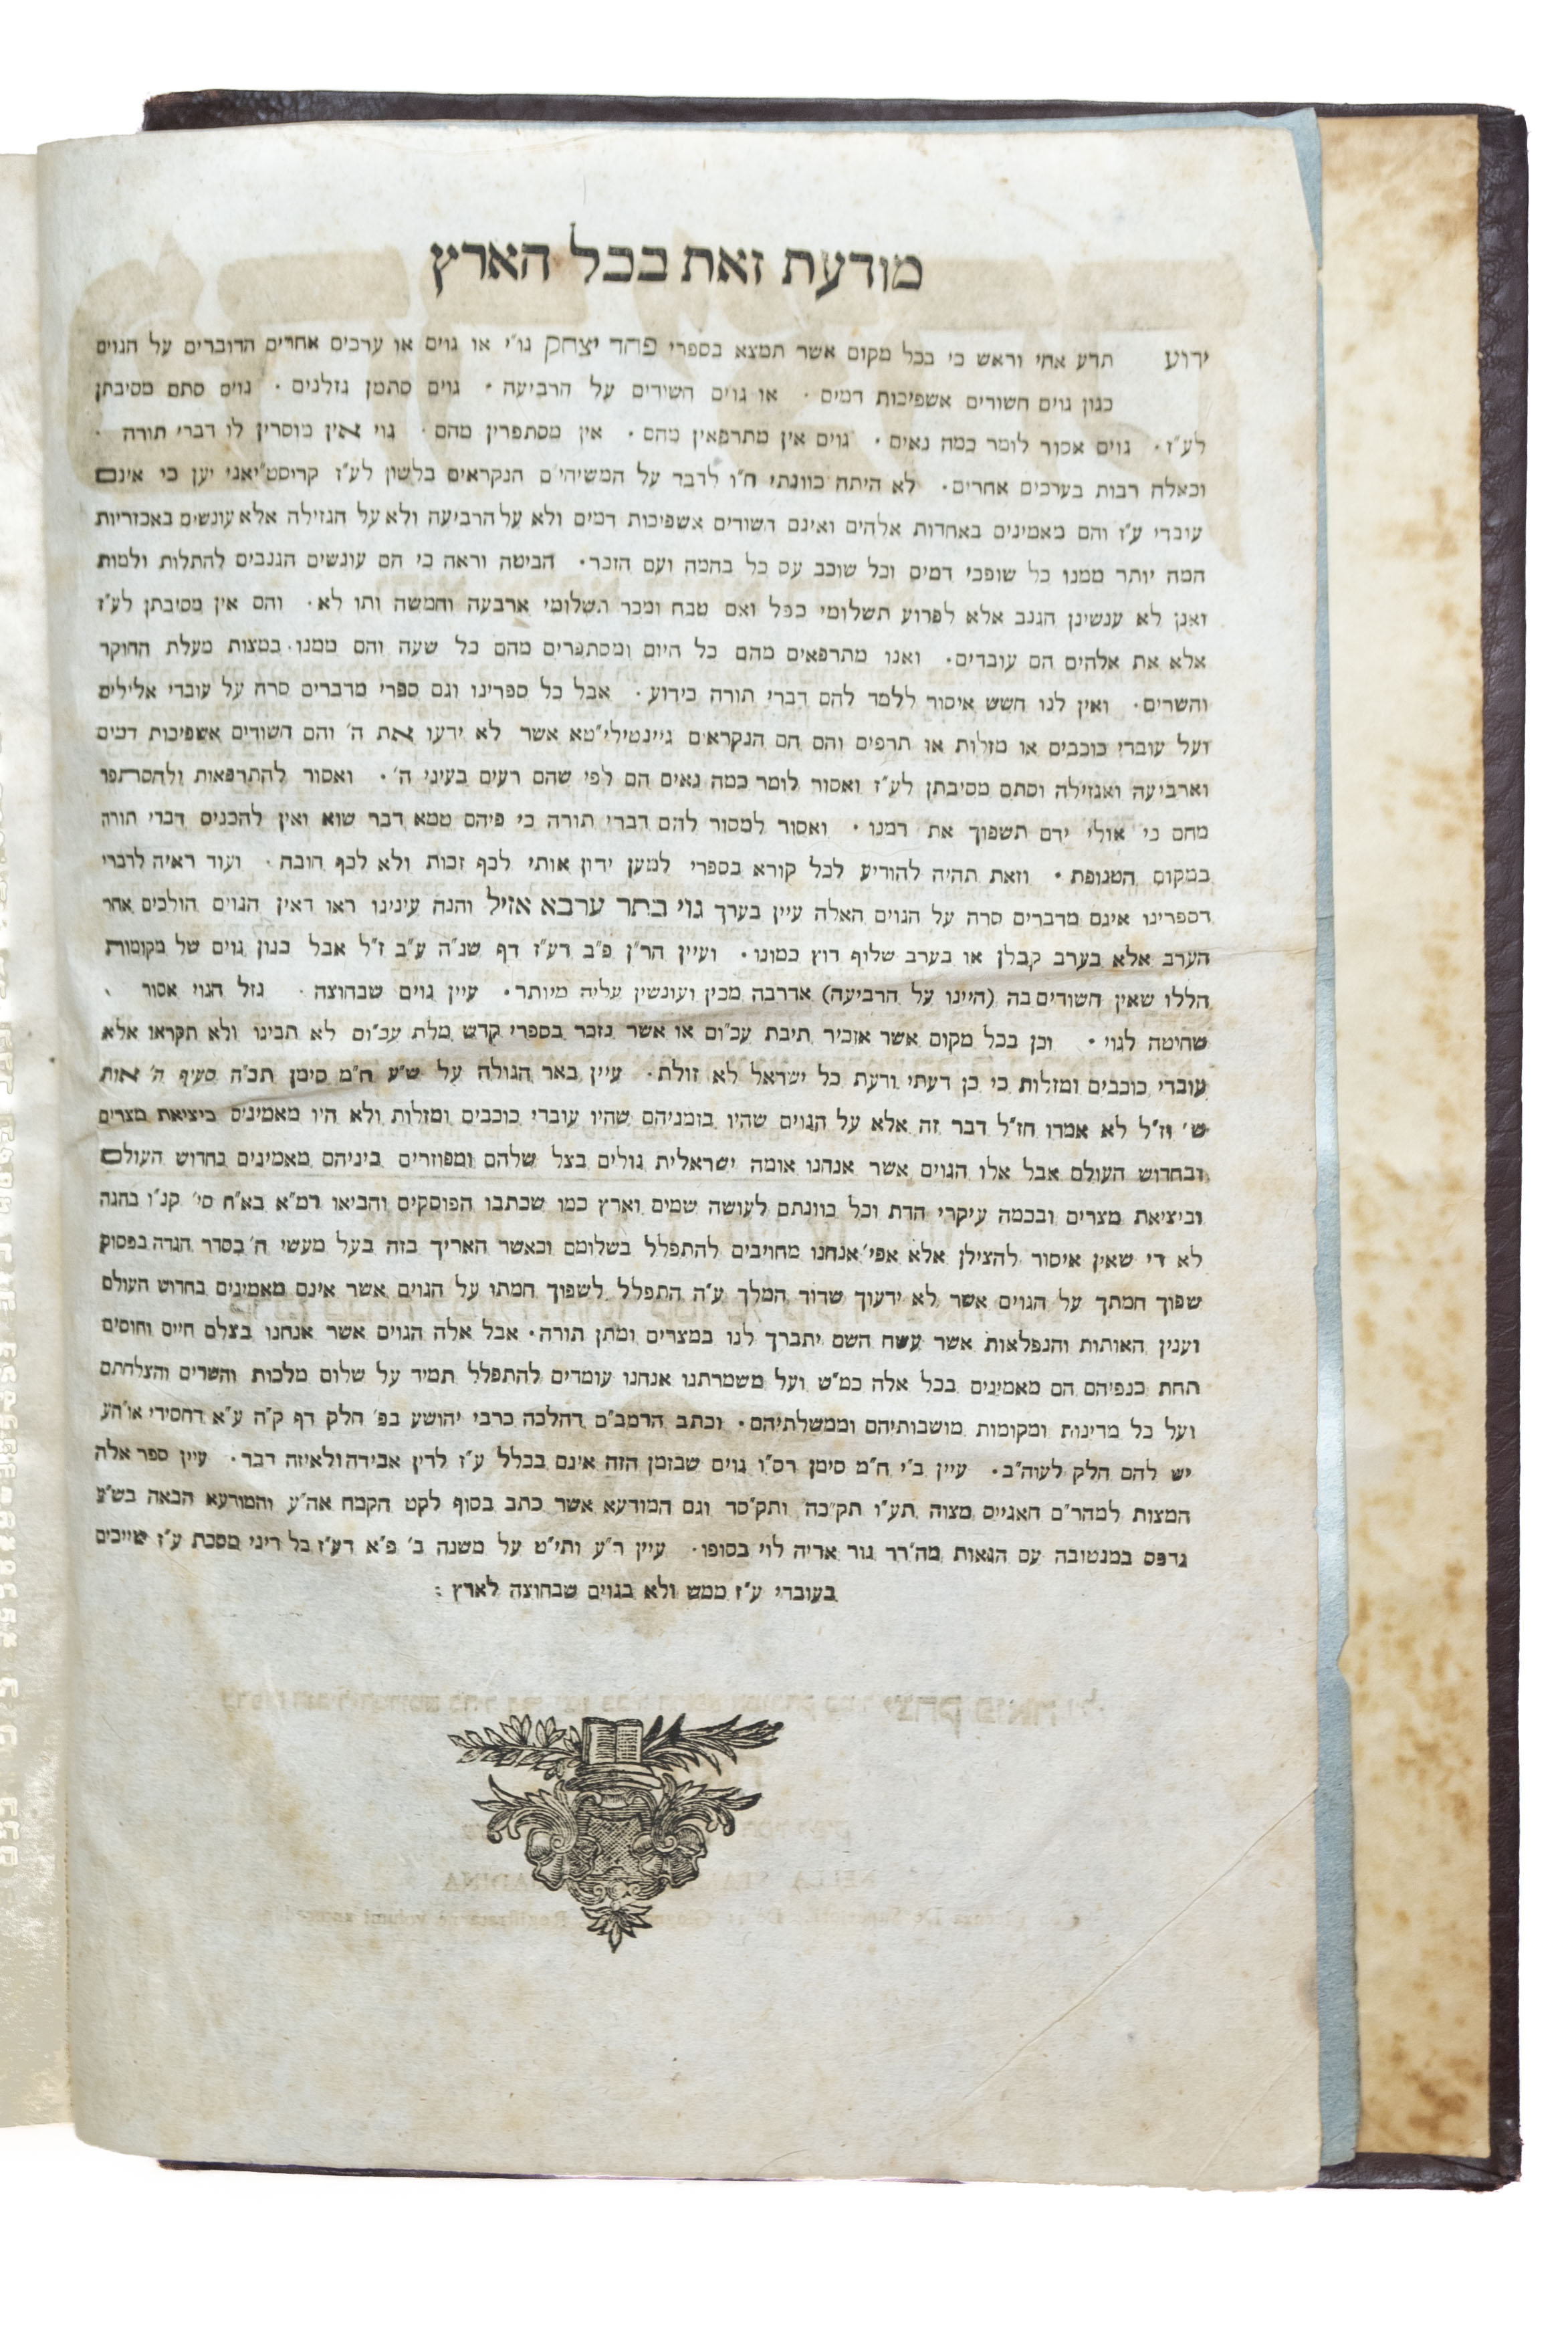 מודעת זאת בכל הארץ
ידוע תדע אחי וראש כי בכל מקום אשר תמצא בספרי פחד יצחק גו״י או גוים או ערכים אחרים הדוברים על הגוים
כגון גוים חשודים אשפיכות דמים · או גוים חשודים על הרביעה · גוים סתמן גזלנים · גוים סתם מסיבתן
לע״ז · גוים אסור לומר כמה נאים · גוים אין מתרפאין מהם · אין מסתפרין מהם · גוי אין מוסרין לו דברי תורה ·
וכאלה רבות בערכים אחרים · לא היתה כוונתי ח״ו לדבר על המשיהי״ם הנקראים בלשון לע״ז קריסט״יאני יען כי אינם
עובדי ע״ז והם מאמינים באחדות אלהים ואינם חשודים אשפיכות דמים ולא על הרביעה ולא על הגזילה אלא עונשים באכזריות
המה יותר ממנו כל שופכי דמים וכל שוכב עם כל בהמה ועם הזכר · הביטה וראה כי הם עונשים הגנבים להתלות ולמות
ואנן לא ענשינן הגנב אלא לפרוע תשלומי כפל ואם טבח ומכר תשלומי ארבעה וחמשה ותו לא · והם אין מסיבתן לע״ז
אלא את אלהים הם עובדים · ואנו מתרפאים מהם כל היום ומסתפרים מהם כל שעה והם ממנו · במצות מעלת החוקר
והשרים · ואין לנו חשש איסור ללמד להם דברי תורה כידוע · אבל כל ספרינו וגם ספרי מדברים סרה על עובדי אלילים
ועל עובדי כוכבים או מזלות או תרפים והם הם הנקראים גיינטילי״טא אשר לא ידעו את ה׳ והם חשודים אשפיכות דמים
וארביעה ואגזילה וסתם מסיבתן לע״ז ואסור לומר כמה נאים הם לפי שהם רעים בעיני ה׳ · ואסור להתרפאות ולהסתפר
מהם כי אולי ידם תשפוך את דמנו · ואסור למסור להם דברי תורה כי פיהם טמא דבר שוא ואין להכניס דברי תורה
במקום הטנופת · וזאת תהיה להודיע לכל קורא בספרי למען ידון אותי לכף זכות ולא לכף חובה · ועוד ראיה לדברי
דספרינו אינם מדברים סרה על הגוים האלה עיין בערך גוי בתר ערבא אזיל והנה עינינו ראו דאין הגוים הולכים אחר
הערב אלא בערב קבלן או בערב שלוף דוץ כמונו · ועיין הר״ן פ״ב דע״ז דף שנ״ה ע״ב ז״ל אבל כגון גוים של מקומות
הללו שאין חשודים בה (היינו על הרביעה) אדרבה מכין ועונשין עליה מיותר · עיין גוים שבחוצה · גזל הגוי אסור ·
שחיטה לגוי · וכן בכל מקום אשר אזכיר תיבת עכ״ום או אשר נזכר בספרי קדש מלת עכ״ום לא תבינו ולא תקראו אלא
עובדי כוכבים ומזלות כי כן דעתי ודעת כל ישראל לא זולת · עיין באר הגולה על ש״ע ח״מ סימן תכ״ה סעיף ה׳ אות
ש׳ וז״ל לא אמרו חז״ל דבר זה אלא על הגוים שהיו בזמניהם שהיו עובדי כוכבים ומזלות ולא היו מאמינים ביציאת מצרים
ובחדוש העולם אבל אלו הגוים אשר אנחנו אומה ישראלית גולים בצל שלהם ומפוזרים ביניהם מאמינים בחדוש העולם
וביציאת מצרים ובכמה עיקרי הדת וכל כוונתם לעושה שמים וארץ כמו שכתבו הפוסקים והביאו רמ״א בא״ח סי׳ קנ״ו בהגה
לא די שאין איסור להצילן אלא אפי׳ אנחנו מחויבים להתפלל בשלומם וכאשר האריך בזה בעל מעשי ה׳ בסדר הגדה בפסוק
שפוך חמתך על הגוים אשר לא ידעוך שדוד המלך ע״ה התפלל לשפוך חמתו על הגוים אשר אינם מאמינים בחדוש העולם
וענין האותות והנפלאות אשר עשה השם יתברך לנו במצרים ומתן תורה · אבל אלה הגוים אשר אנחנו בצלם חיים וחוסים
תחת כנפיהם הם מאמינים בכל אלה כמ״ש ועל משמרתנו אנחנו עומדים להתפלל תמיד על שלום מלכות והשרים והצלחתם
ועל כל מדינות ומקומות מושבותיהם וממשלתיהם · וכתב הרמב״ם דהלכה כרבי יהושע בפ׳ חלק דף ק״ה ע״א דחסידי או׳הע
יש להם חלק לעוה״ב · עיין ב״י ח״מ סימן רס״ו גוים שבזמן הזה אינם בכלל ע״ז לדין אבידה ולאיזה דבר · עיין ספר אלה
המצות למהר״ם חאגייס מצוה תע״ו תק״כה ותק״סד וגם המודעא אשר כתב בסוף לקט הקמח אה״ע והמודעא הבאה בש״ע
נדפס במנטובה עם הגאות מה״רר גור אריה לוי בסופו · עיין ר״ע ותי״ט על משנה ב׳ פ״א דע״ז כל דיני מסכת ע״ז שייכים
בעובדי ע״ז ממש ולא בגוים שבחוצה לארץ :